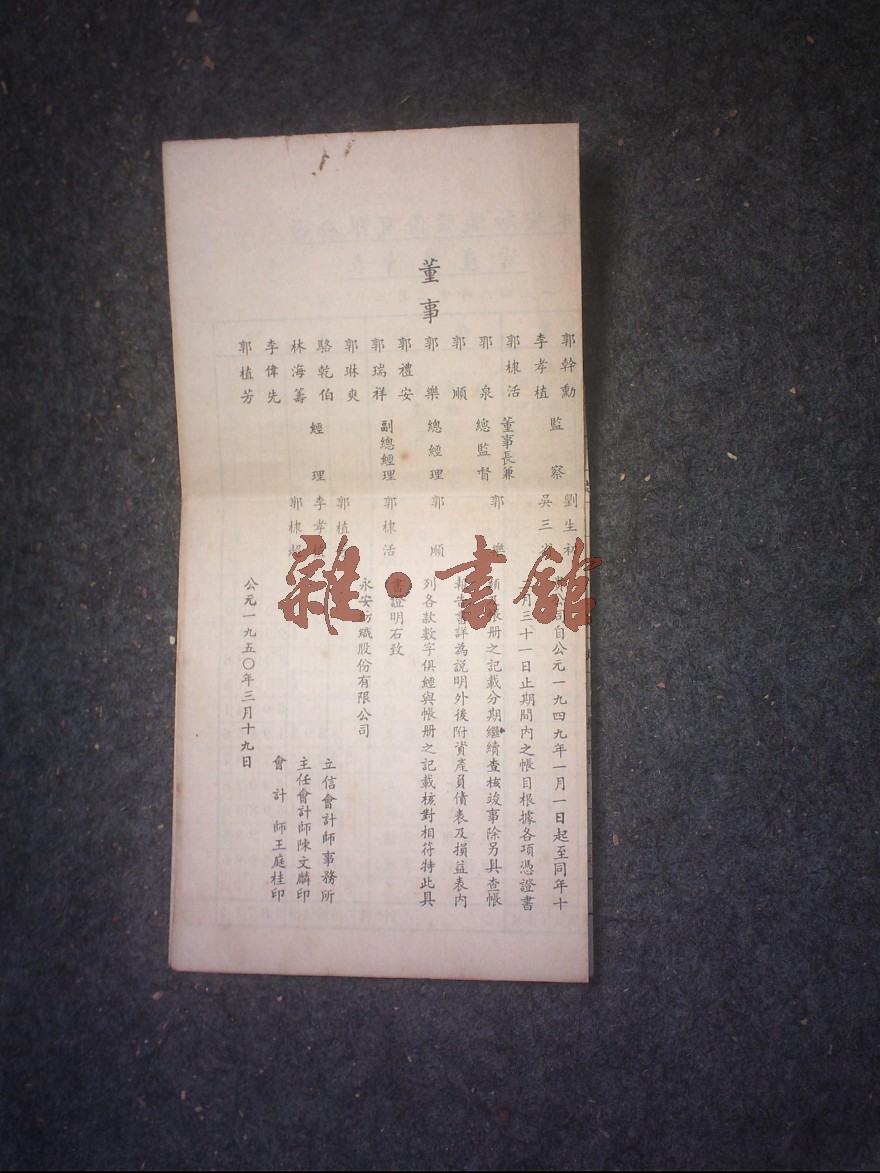 董事
郭幹勳
李孝植
郭棣活
郭泉
郭順
郭樂
郭禮安
郭瑞祥
郭琳爽
駱乾伯
林海籌
李偉先
郭植芳
監察
劉生初
吳三
董事長兼
總監督
郭樂
總經理
郭順
副總經理
郭棣活
經理
郭植
李孝
郭棣超
公司自公元一九四九年一月一日起至同年十
二月三十一日止期間內之帳目根據各項憑證書
類及帳册之記載分期繼續查核竣事除另具查帳
報告書詳為説明外後附資產負債表及損益表內
列各款數字俱經與帳册之記載核對相符特此具
書證明右致
永安紡織股份有限公司
立信會計師事務所
主任會計師陳文麟印
會計師王庭桂印
公元一九五〇年三月十九日
雜·書館